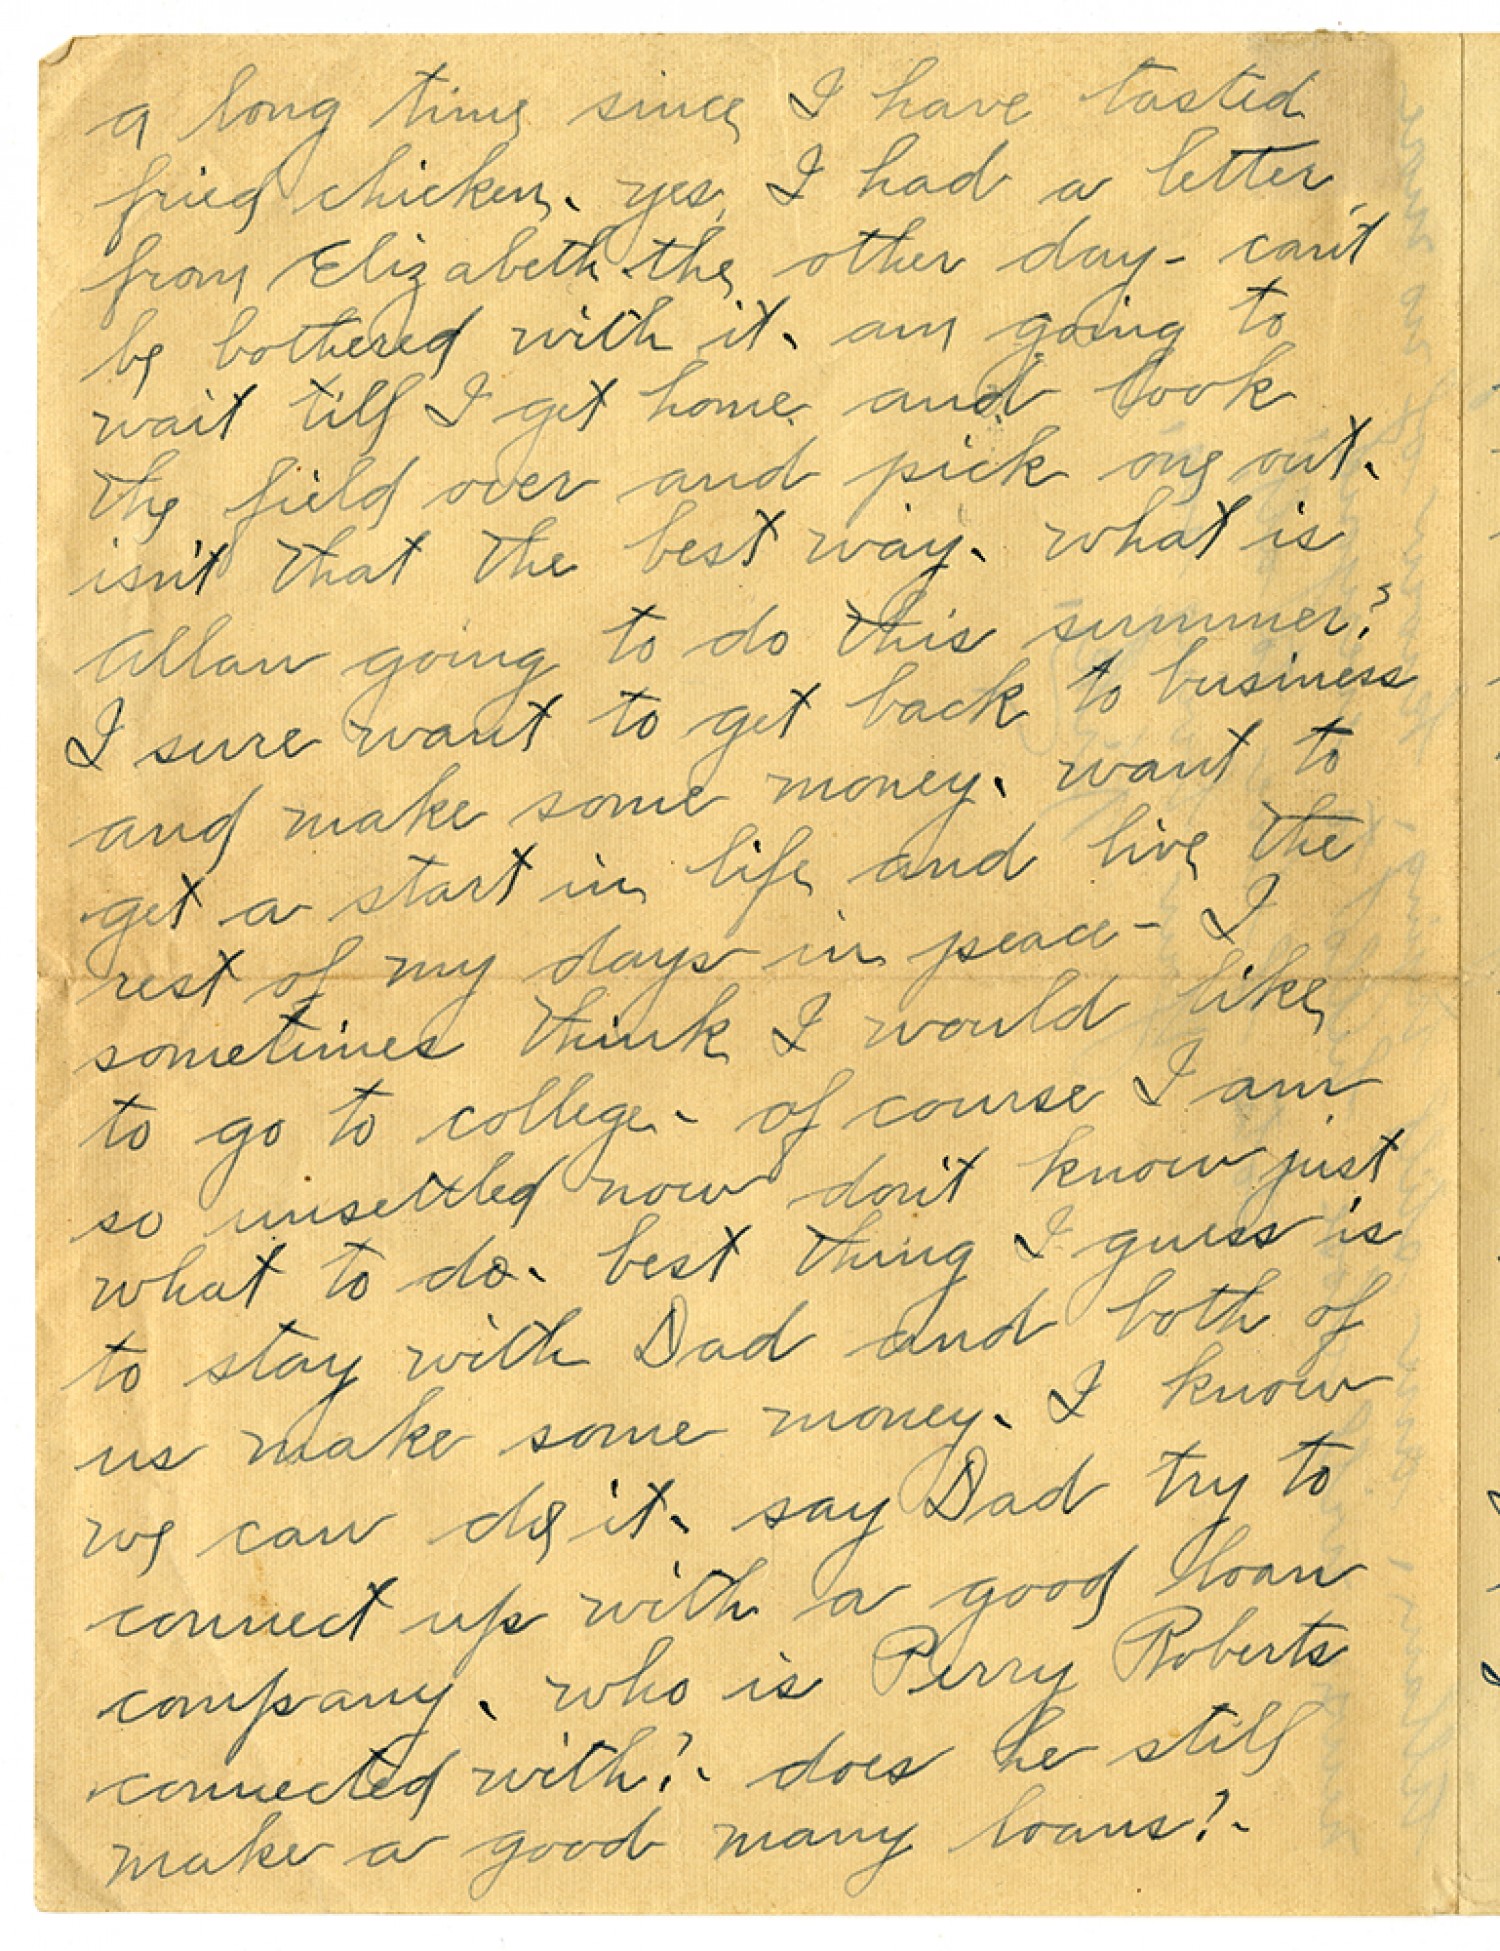 a long time since I have tasted
fried chicken. yes, I had a letter
from Elizabeth the other day - can't
be bothered with it. am going to
wait till I get home and look
the field over and pick one out.
isn't that the best way. what is
Allan going to do this summer?
I sure want to get back to business
and make some money. want to
get a start in life and live the
rest of my days in peace - I
sometimes think I would like
to go to college - of course I am
so unsettled now don't know just
what to do. best thing I guess is
to stay with Dad and both of
us make some money. I know
we can do it. say Dad try to
connect up with a good loan
company. who is Perry Roberts
connected with? - does he still
make a good many loans? -